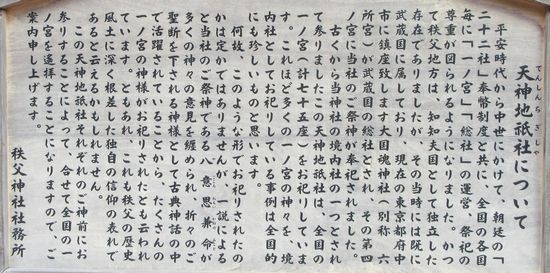 天神地祇社について
てんしんちぎしゃ
平安時代から中世にかけて、朝廷の「
二十二社」奉幣制度と共に、全国の各国
毎に「一ノ宮」「総社」の運営、祭祀の
尊重が図られるようになりました。かつ
て秩父地方は、知知夫国として独立した
存在でありましたが、その当時には既に
武蔵国に属しており、現在の東京都府中
市に鎮座致します大国魂神社(別称 六
所宮)が武蔵国の総社とされ、その第四
ノ宮に当社のご祭神が奉祀されました。
古くから当神社の境内社の一つとされ
て参りましたこの天神地祇社は、全国の
一ノ宮(計七十五座)をお祀りしていま
す。これほど多くの一ノ宮の神々を、境
内社としてお祀りしている事例は全国的
にも珍しいものと思います。
何故、このような形でお祀りされたの
かは定かではありませんが、一説による
と当社のご祭神である八意思兼命が
多くの神々の意見を纏められ、折々のご
聖断を下される神様として古典神話の中
で活躍されていることから、たくさんの
一ノ宮の神様がお祀りされたとも云われ
ています。ともあれ、これも秩父の歴史
風土に深く根差した独自の信仰の表れで
あると云えるかもしれません。
この天神地祇社それぞれのご神前にお
参りすることによって、合せて全国の一
ノ宮を遥拝することになりますので、ご
案内申し上げます。
秩父神社社務所